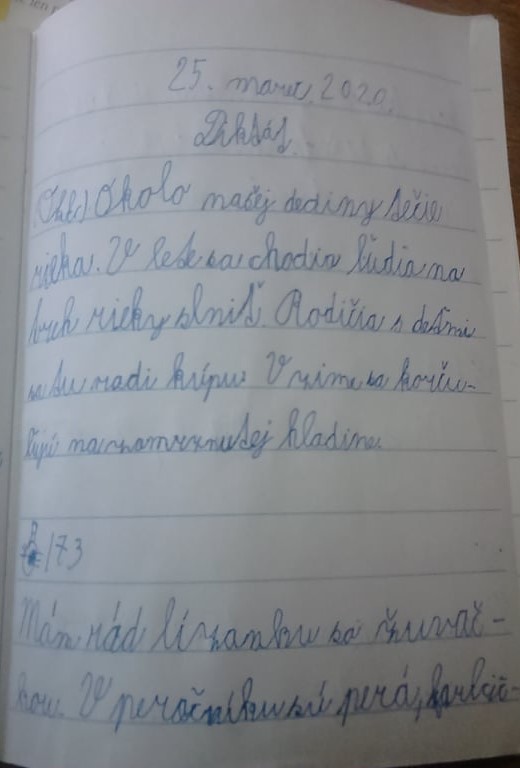 25. marec 2020.
Diktát
Okolo našej dediny tečie
rieka. V lete sa chodia ľudia na
breh rieky slniť. Rodičia s deťmi
sa tu radi kúpu. V zime sa korču-
ľujú na zamrznutej hladine.
8/73
Mám rád lízanku so žuvač-
kou. V peračníku sú perá, farbič-